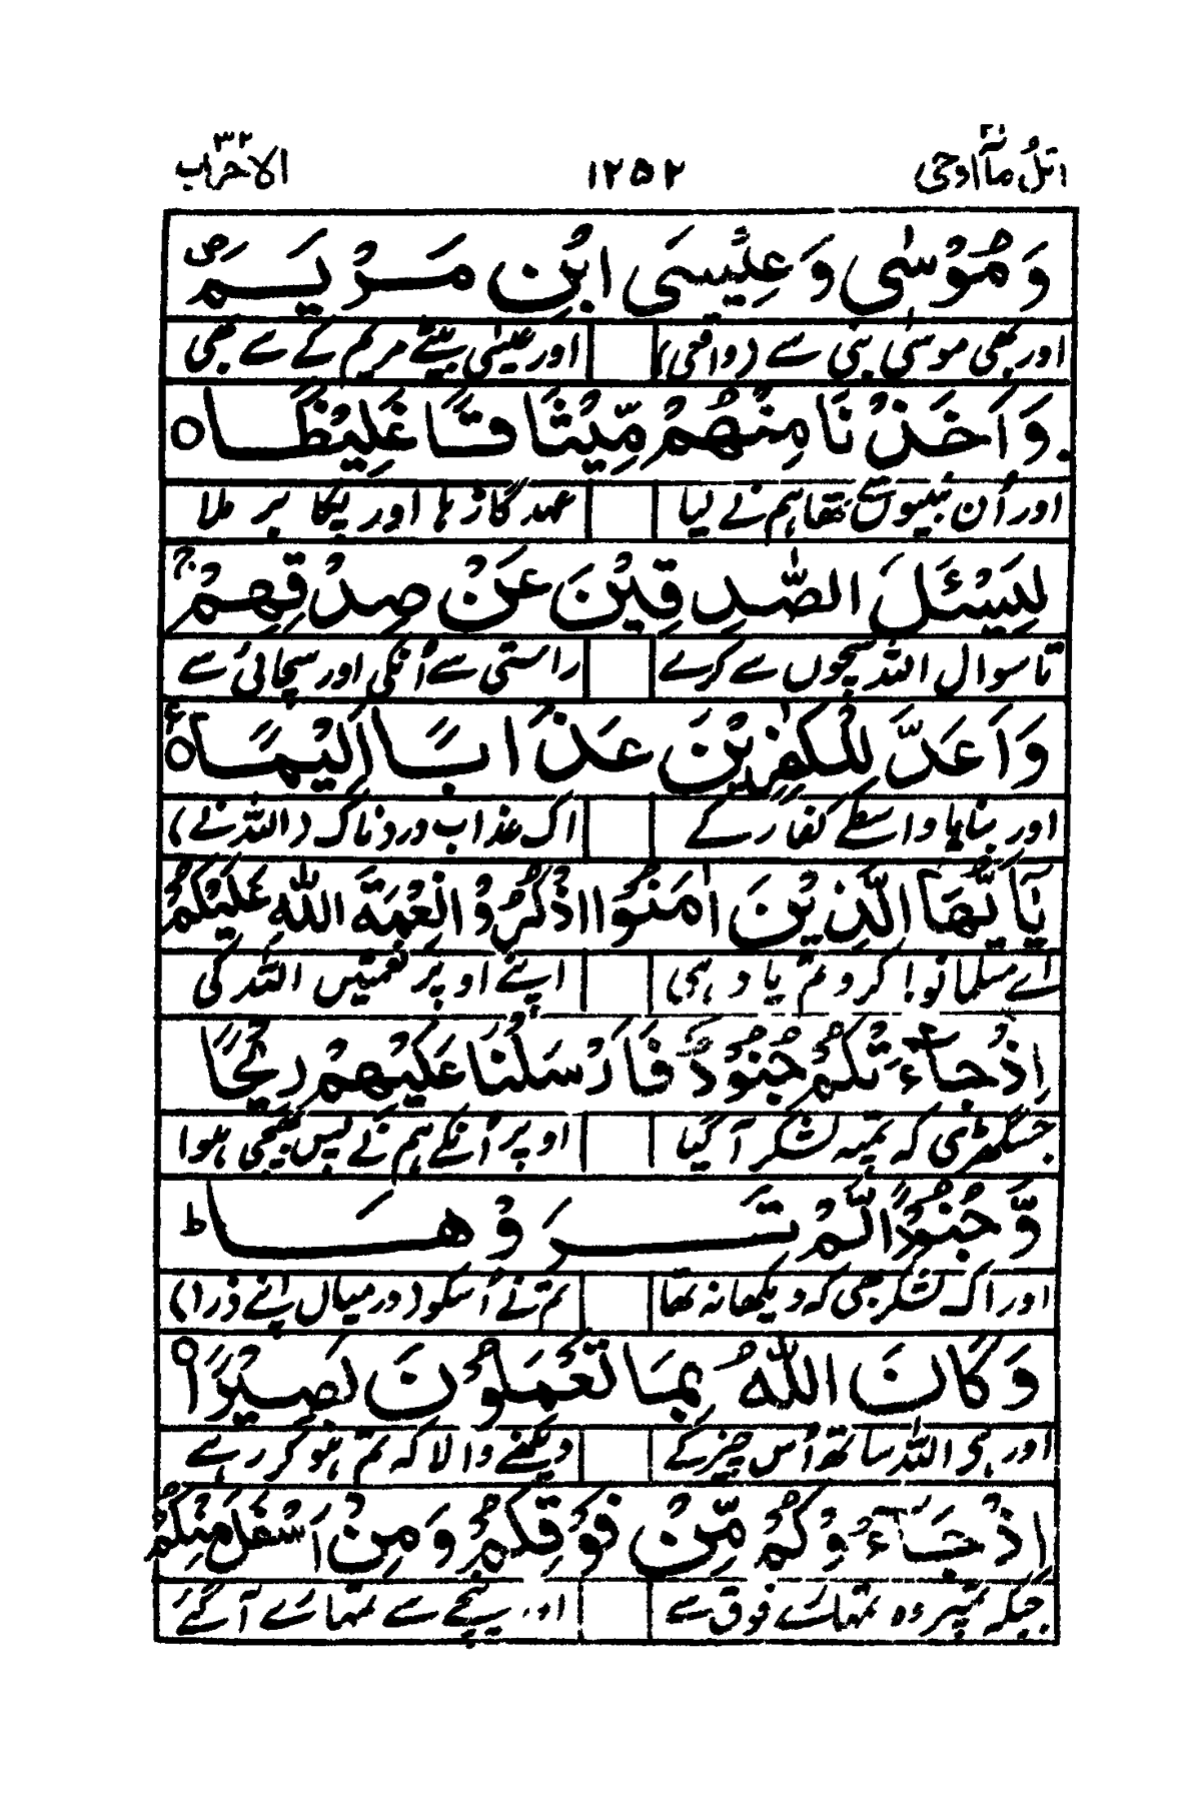 اتل مآ اوحی ۲۱ ۱۲۵۲ الاحزاب ۳۳
وَمُوْسٰى وَعِيْسَى ابْنِ مَرْيَمَ ص
اور بھی موسٰی نبی سے (واقعی) اور عیسٰی بیٹے مریم کے سے بھی
وَاَخَذْنَا مِنْهُمْ مِّيْثَاقًا غَلِيْظًا ○
اور اُن نبیوں سے تھا ہم نے لیا عہد گاڑہا اور پکا بر ملا
لِيَسْـَٔلَ الصّٰدِقِيْنَ عَنْ صِدْقِهِمْ ج
تا سوال اللہ سچوں سے کرے راستی سے اُنکی اور سچائی سے
وَاَعَدَّ لِلْكٰفِرِيْنَ عَذَابًا اَلِيْمًا ○ ع
اور بنایا واسطے کفار کے اک عذاب دردناک (اللہ نے)
يٰٓاَيُّهَا الَّذِيْنَ اٰمَنُوا اذْكُرُوْا نِعْمَةَ اللّٰهِ عَلَيْكُمْ
اے مسلمانو! کرو تم یاد ہی اپنے اوپر نعمتیں اللہ کی
اِذْ جَآءَتْكُمْ جُنُوْدٌ فَاَرْسَلْنَا عَلَيْهِمْ رِيْحًا
جس گھڑی کہ تمپہ لشکر آ گیا اوپر اُنکے ہم نے پس بھیجی ہوا
وَّجُنُوْدًا لَّمْ تَرَوْهَا ط
اور اک لشکر بھی کہ دیکھا نہ تھا تم نے اُسکو (درمیاں اپنے ذرا)
وَكَانَ اللّٰهُ بِمَا تَعْمَلُوْنَ بَصِيْرًا ○
اور ہی اللہ ساتھ اُس چیز کے دیکھنے والا کہ تم ہو کر رہے
اِذْ جَآءُوْكُمْ مِّنْ فَوْقِكُمْ وَمِنْ اَسْفَلَ مِنْكُمْ
جبکہ تمپر وہ تمہارے فوق سے اور نیچے سے تمہارے آ گئے